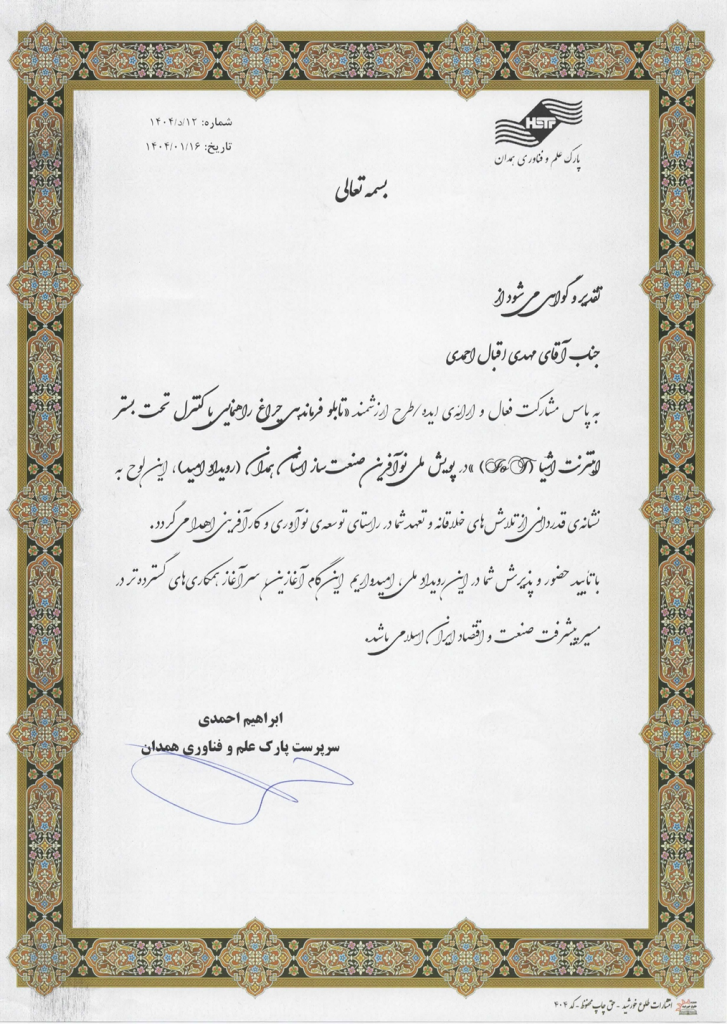 شماره: ۱۴۰۴/د/۱۲
تاریخ: ۱۴۰۴/۰۱/۱۶
HSTP
پارک علم و فناوری همدان
بسمه تعالی
تقدیر و گواهی می شود از
جناب آقای مهدی اقبال احمدی
به پاس مشارکت فعال و ارائه‌ی ایده/طرح ارزشمند «تابلو فرماندهی چراغ راهنمایی با کنترل تحت بستر
اینترنت اشیا (IoT)» در پویش ملی نوآفرین صنعت ساز استان همدان (رویداد امید)، این لوح به
نشانه‌ی قدردانی از تلاش‌های خلاقانه و تعهد شما در راستای توسعه‌ی نوآوری و کارآفرینی اهدا می گردد.
با تایید حضور و پذیرش شما در این رویداد ملی، امیدواریم این گام آغازین، سرآغاز همکاری‌های گسترده تر در
مسیر پیشرفت صنعت و اقتصاد ایران اسلامی باشد.
ابراهیم احمدی
سرپرست پارک علم و فناوری همدان
انتشارات طلوع خورشید - حق چاپ محفوظ - کد ۴۰۴